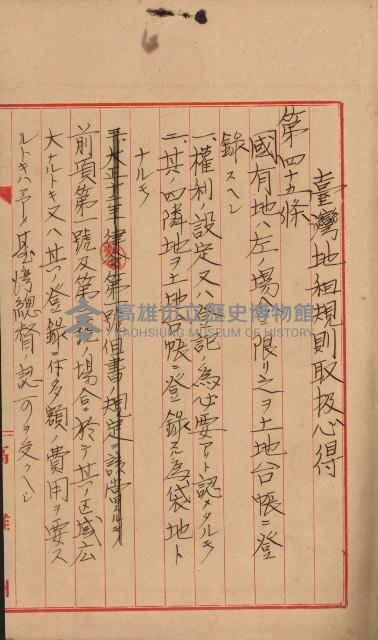 臺灣地租規則取扱心得
第四十五條
國有地ハ左ノ場合ニ限リ之ヲ土地台帳ニ登
錄スヘシ
一、權利ノ設定又ハ登記ノ為必要アリト認メタルキ
二、其ノ四隣地ヲ土地台帳ニ登錄スル為袋地ト
ナルキ
大正十二年律令第一號但書規定ニ該當スルキ
前項第一號及第二號ノ場合ニ於テ其ノ区域広
大ナルトキ又ハ其ノ登錄ニ付多額ノ費用ヲ要ス
ルトキハ臺灣總督ノ認可ヲ受クヘシ
高雄州
高雄市立歷史博物館
KAOHSIUNG MUSEUM OF HISTORY